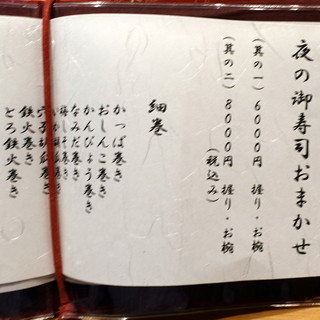 夜の御寿司おまかせ
(其の一) 6000円 握り・お椀
(其の二) 8000円 握り・お椀
(税込み)
細巻
かっぱ巻き
おしんこ巻き
かんぴょう巻き
なみだ巻き
梅しそ巻き
穴子胡瓜巻き
鉄火巻き
とろ鉄火巻き